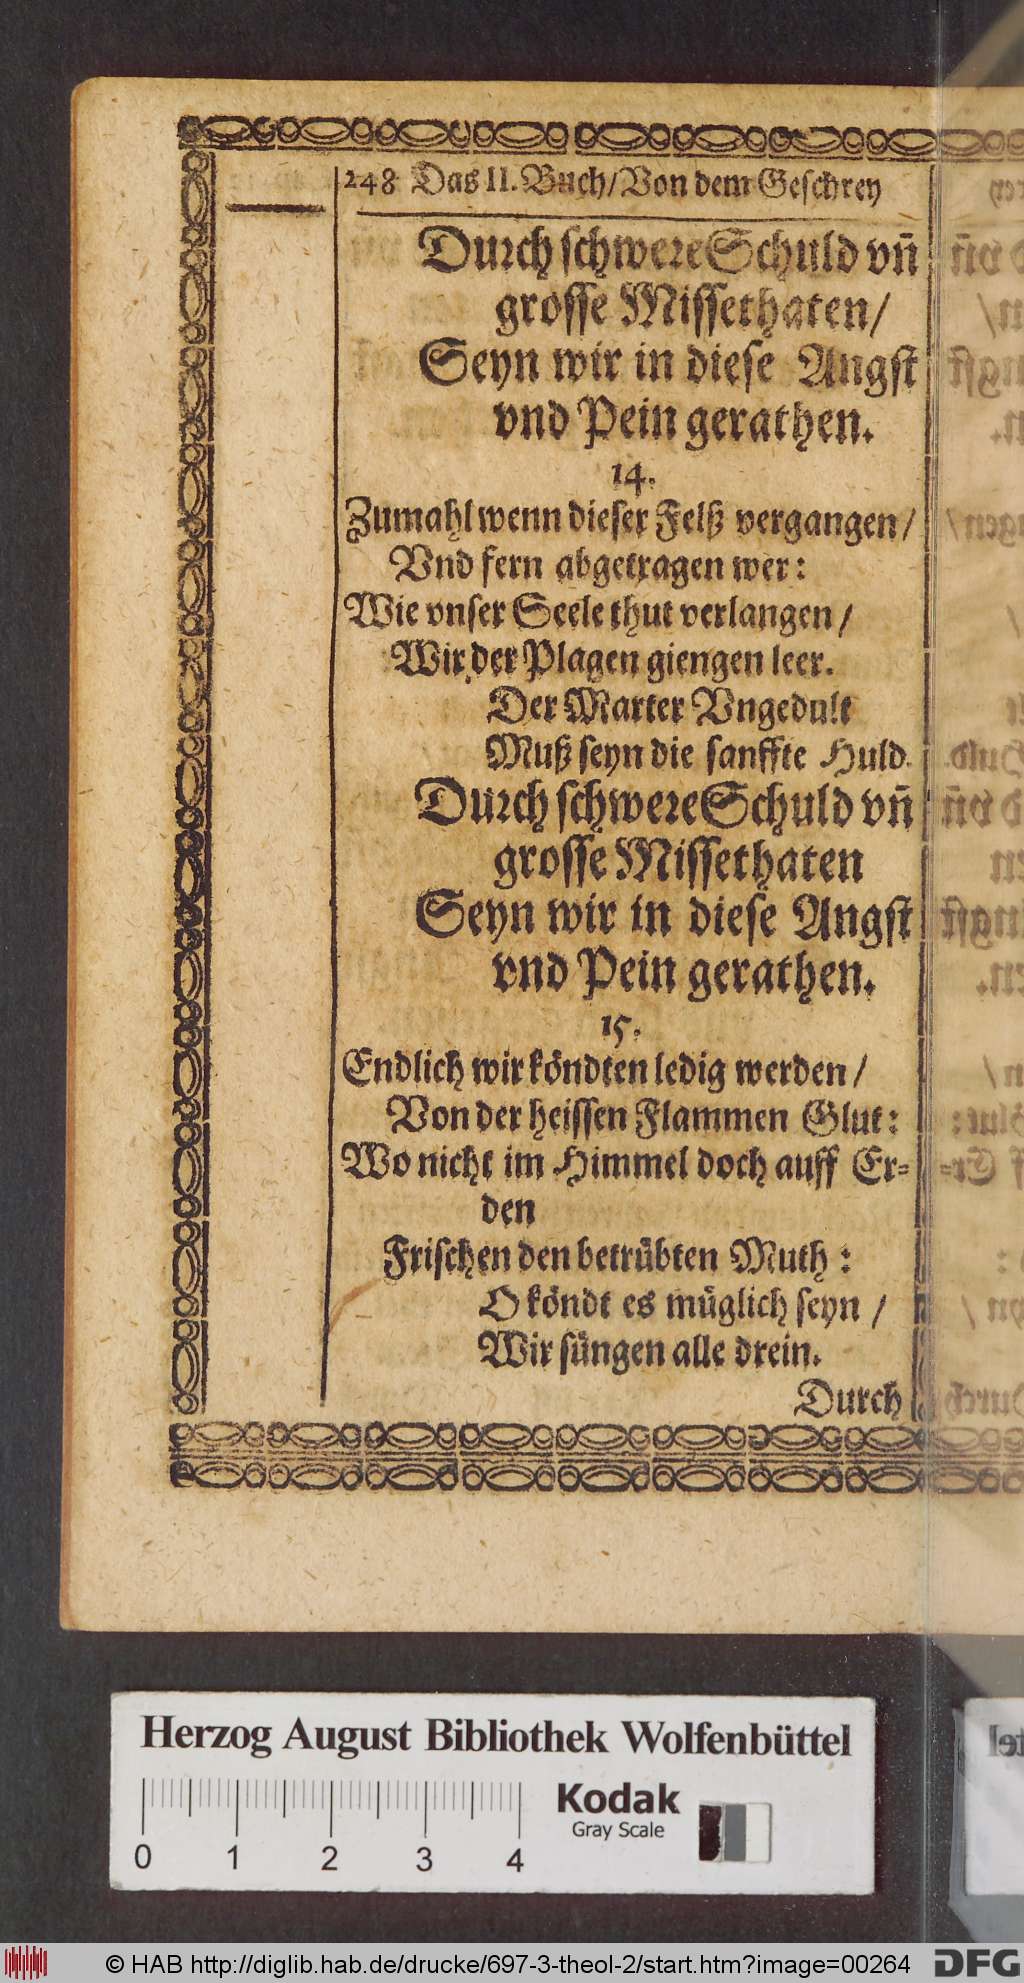 248 Das II. Buch/Von dem Geschrey
Durch schwere Schuld vn̄
grosse Missethaten/
Seyn wir in diese Angst
vnd Pein gerathen.
14.
Zumahl wenn dieser Felß vergangen/
Vnd fern abgetragen wer:
Wie vnser Seele thut verlangen/
Wir der Plagen giengen leer.
Der Marter Vngedult
Muß seyn die sanffte Huld.
Durch schwere Schuld vn̄
grosse Missethaten
Seyn wir in diese Angst
vnd Pein gerathen.
15.
Endlich wir köndten ledig werden/
Von der heissen Flammen Glut:
Wo nicht im Himmel doch auff Er-
den
Frischen den betrübten Muth:
O köndt es müglich seyn /
Wir süngen alle drein.
Durch
Herzog August Bibliothek Wolfenbüttel
Kodak
Gray Scale
0 1 2 3 4
© HAB http://diglib.hab.de/drucke/697-3-theol-2/start.htm?image=00264
DFG